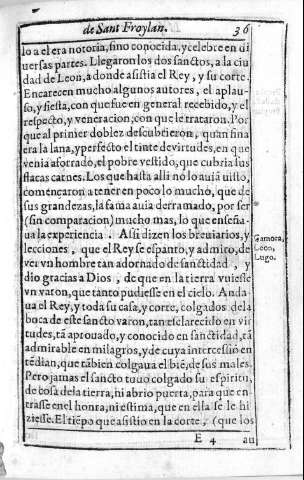 de Sant Froylan. 36
lo a el era notoria, sino conocida, y celebre en di
uersas partes. Llegaron los dos sanctos, a la ciu
dad de Leon, a donde asistia el Rey, y su corte.
Encarecen mucho algunos autores, el aplau-
so, y fiesta, con que fue en general recebido, y el
respecto, y veneracion, con que le trataron. Por
que al primer doblez descubrieron, quan fina
era la lana, y perfecto el tinte de virtudes, en que
venia aforrado, el pobre vestido, que cubria sus
flacas carnes. Los que hasta alli no lo auiã uisto,
començaron a tener en poco lo mucho, que de
sus grandezas, la fama auia derramado, por ser
(sin comparacion) mucho mas, lo que enseña-
ua la experiencia. Assi dizen los breuiarios, y
lecciones, que el Rey se espanto, y admiro, de
ver vn hombre tan adornado de sanctidad, y
dio gracias a Dios, de que en la tierra vuiesse
vn varon, que tanto pudiesse en el cielo. Anda-
ua el Rey, y toda su casa, y corte, colgados de la
boca de este sancto varon, tan esclarecido en vir
tudes, tã aprouado, y conocido en sanctidad, tã
admirable en milagros, y de cuya intercessiõ en
tẽdian, que tãbien colgaua el biẽ, de sus males.
Pero jamas el sancto tuuo colgado su espiritu,
de cosa de la tierra, ni abrio puerta, para que en
trasse en el honra, ni estima, que en ella se le hi
ziesse. El tiẽpo que asistio en la corte, (que los
E 4 au
Gamora,
Leon,
Lugo.